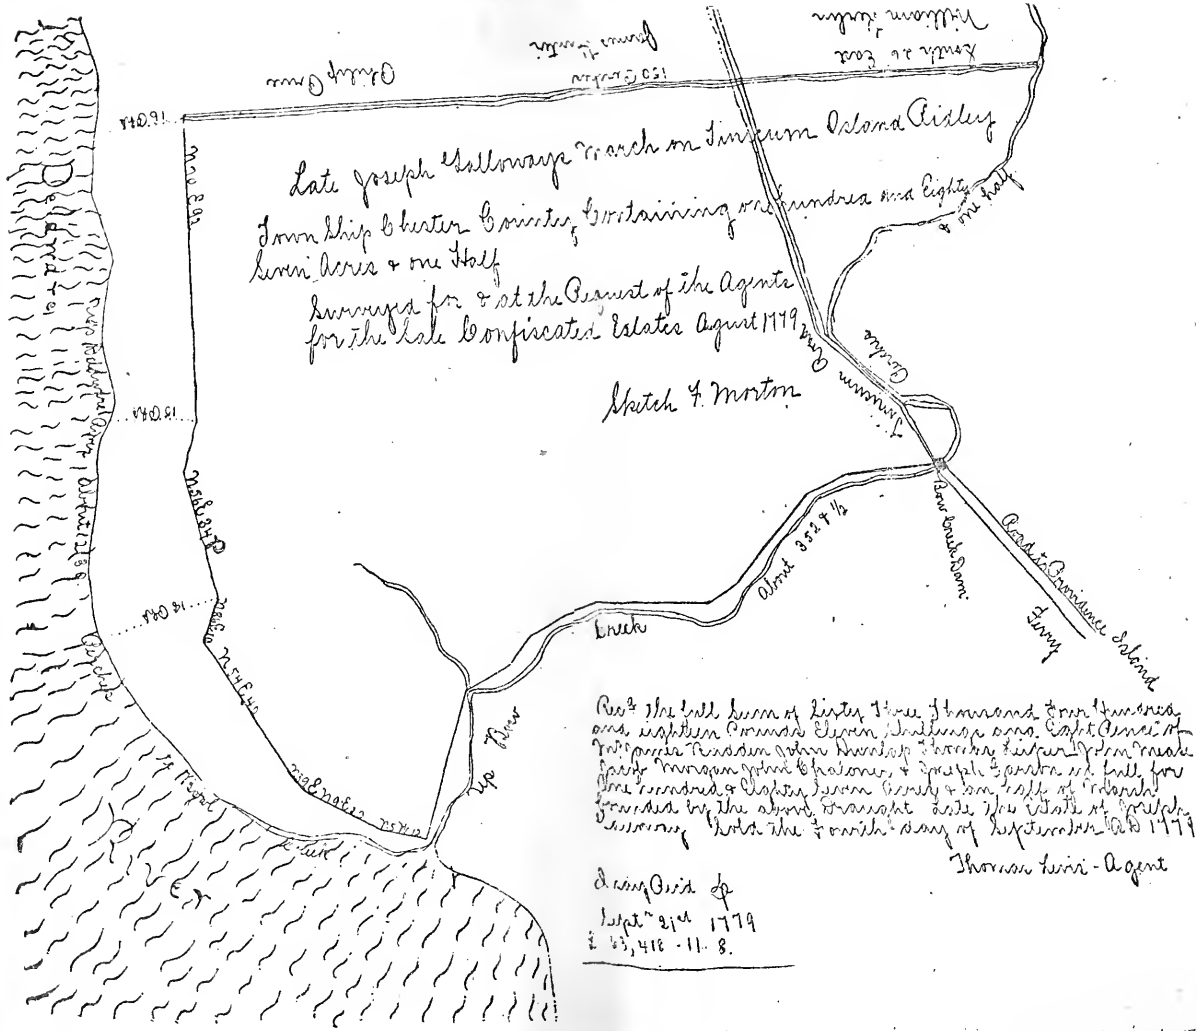 William
James
Philip
South 26 East
150 Perches
18.0
Late Joseph Galloways March on Tinicum Island Ridley
Town Ship Chester County Containing one hundred and Eighty
Seven Acres & one Half
& one half
Surveyed for & at the Request of the Agents
for the Sale Confiscated Estates Agust 1779
Sketch F. Morton
Delawar
River
18.0
N56E34P
18.0
N54E40
Perches
Tinicum Road
Perches
Bow Creek Dam
Road to Providence Island
Ferry
About 352 & 1/2
Creek
Bow
Up
Creek
Recd the full Sum of Sixty Three Thousand Four Hundred
and eighteen Pounds Eleven Shillings and Eight Pence of
James Budden John Dunlap Thomas Leiper John Mease
Jacob Morgan John Chaloner & Joseph in full for
One hundred & Eighty Seven Acres & an half of Marsh
bounded by the above Draught Late the Estate of Joseph
Sold the Fourth day of September AD 1779
Thomas Levis - Agent
Septr 21st 1779
£ 63,418 - 11 - 8.